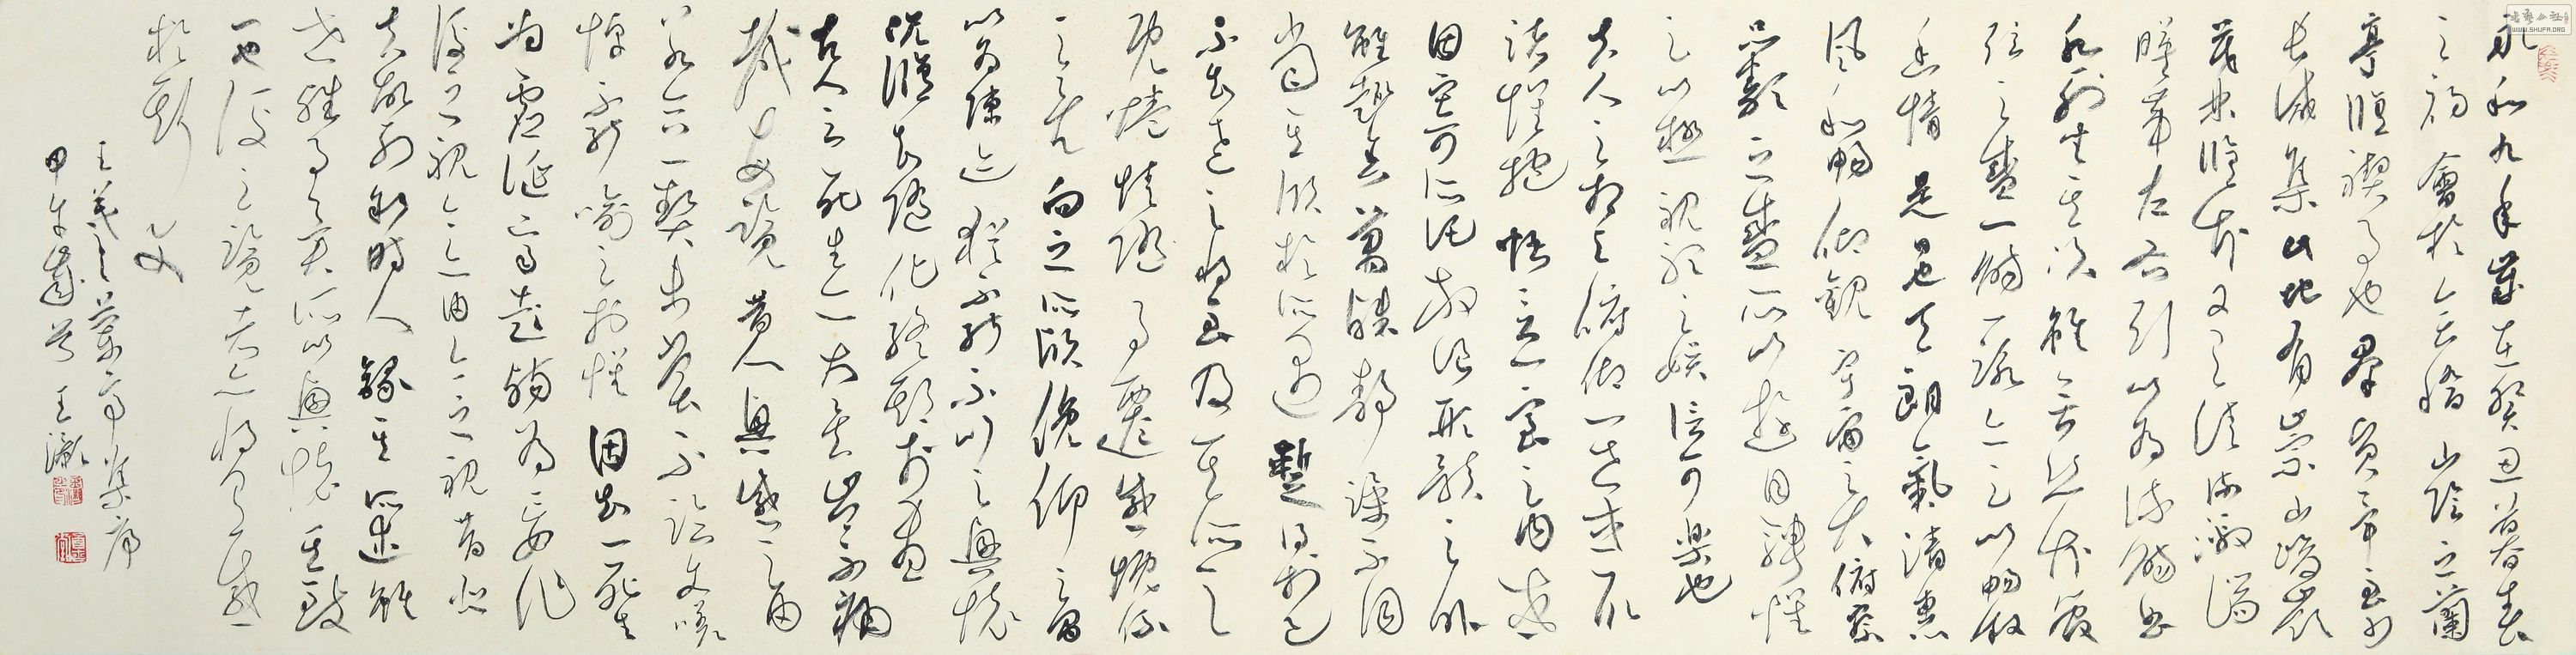 永和九年歲在癸丑暮春
之初會於會稽山陰之蘭
亭脩禊事也羣賢畢至少
長咸集此地有崇山峻嶺
茂林脩竹又有清流激湍
暎帶左右引以為流觴曲
水列坐其次雖無絲竹管
弦之盛一觴一詠亦足以暢敘
幽情是日也天朗氣清惠
風和暢仰觀宇宙之大俯察
品類之盛所以遊目騁懷
足以極視聽之娛信可樂也
夫人之相與俯仰一世或取
諸懷抱悟言一室之內或
因寄所託放浪形骸之外
雖趣舍萬殊靜躁不同
當其欣於所遇暫得於己
不知老之將至及其所之
既惓情隨事遷感慨係
之矣向之所欣俛仰之間
以為陳迹猶不能不以之興懷
況脩短隨化終期於盡
古人云死生亦大矣豈不痛
哉每覽昔人興感之由
若合一契未嘗不臨文嗟
悼不能喻之於懷固知一死生
為虛誕齊彭殤為妄作
後之視今亦由今之視昔悲
夫故列敘時人錄其所述雖
世殊事異所以興懷其致
一也後之覽者亦將有感
於斯
文
王羲之蘭亭集序
甲午歲 王
WWW.SHUFA.ORG